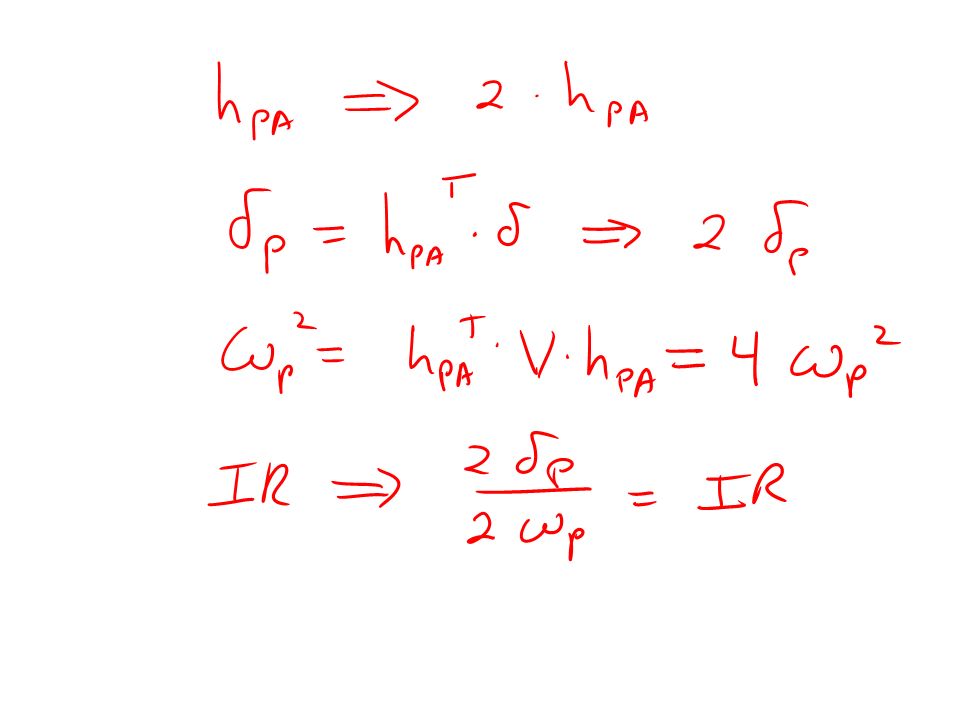 h_PA ⇒ 2 · h_PA
δ_P = h_PA^T · δ ⇒ 2 δ_P
ω_P^2 = h_PA^T · V · h_PA = 4 ω_P^2
IR ⇒ (2 δ_P)/(2 ω_P) = IR